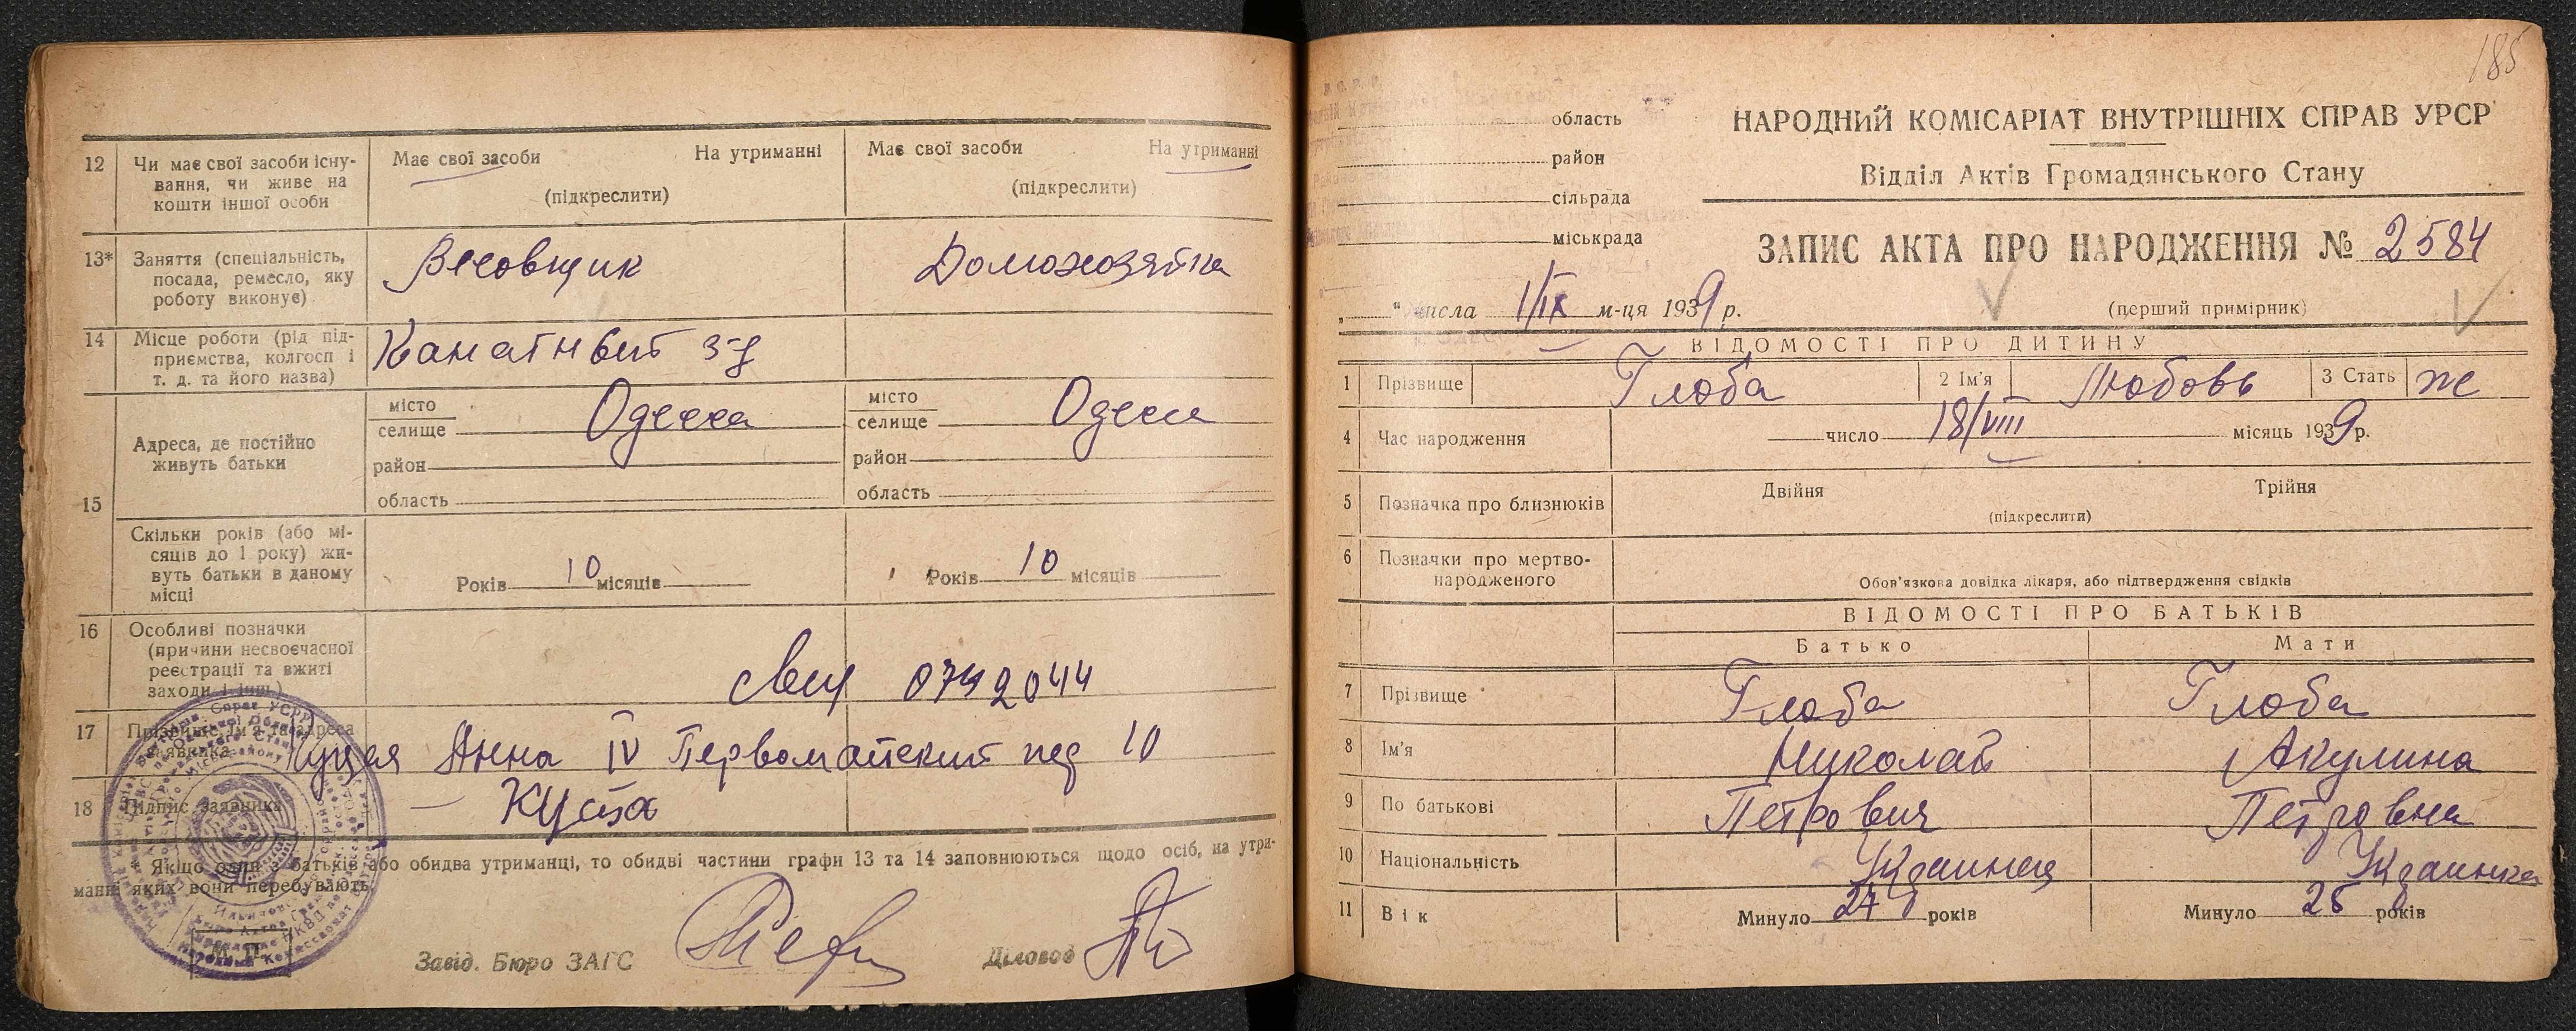 12 Чи має свої засоби існу-
вання, чи живе на
кошти іншої особи
Має свої засоби На утриманні
(підкреслити)
Має свої засоби На утриманні
(підкреслити)
13* Заняття (спеціальність,
посада, ремесло, яку
роботу виконує)
Весовщик
Домохозяйка
14 Місце роботи (рід під-
приємства, колгосп і
т. д. та його назва)
Канатный з-д
15 Адреса, де постійно
живуть батьки
місто
селище Одесса
район
область
місто
селище Одесса
район
область
Скільки років (або мі-
сяців до 1 року) жи-
вуть батьки в даному
місці
Років 10 місяців
Років 10 місяців
16 Особливі позначки
(причини несвоєчасної
реєстрації та вжиті
заходи і інш.)
0742044
17 Прізвище, ім'я та адреса
заявника
Куцая Анна IV Первомайский пер 10
18 Підпис заявника
Куцая
* Якщо один з батьків або обидва утриманці, то обидві частини графи 13 та 14 заповнюються щодо осіб, на утри-
манні яких вони перебувають.
М. П.
Завід. Бюро ЗАГС
Діловод
185
область
район
сільрада
міськрада
НАРОДНИЙ КОМІСАРІАТ ВНУТРІШНІХ СПРАВ УРСР
Відділ Актів Громадянського Стану
ЗАПИС АКТА ПРО НАРОДЖЕННЯ № 2584
„ “ числа 1/IX м-ця 1939 р.
(перший примірник)
ВІДОМОСТІ ПРО ДИТИНУ
1 Прізвище Глоба 2 Ім'я Любовь 3 Стать ж
4 Час народження число 18/VIII місяць 1939 р.
5 Позначка про близнюків Двійня Трійня
(підкреслити)
6 Позначки про мертво-
народженого
Обов'язкова довідка лікаря, або підтвердження свідків
ВІДОМОСТІ ПРО БАТЬКІВ
Батько Мати
7 Прізвище Глоба Глоба
8 Ім'я Николай Акулина
9 По батькові Петрович Петровна
10 Національність Украинец Украинка
11 Вік Минуло 27 років Минуло 26 років